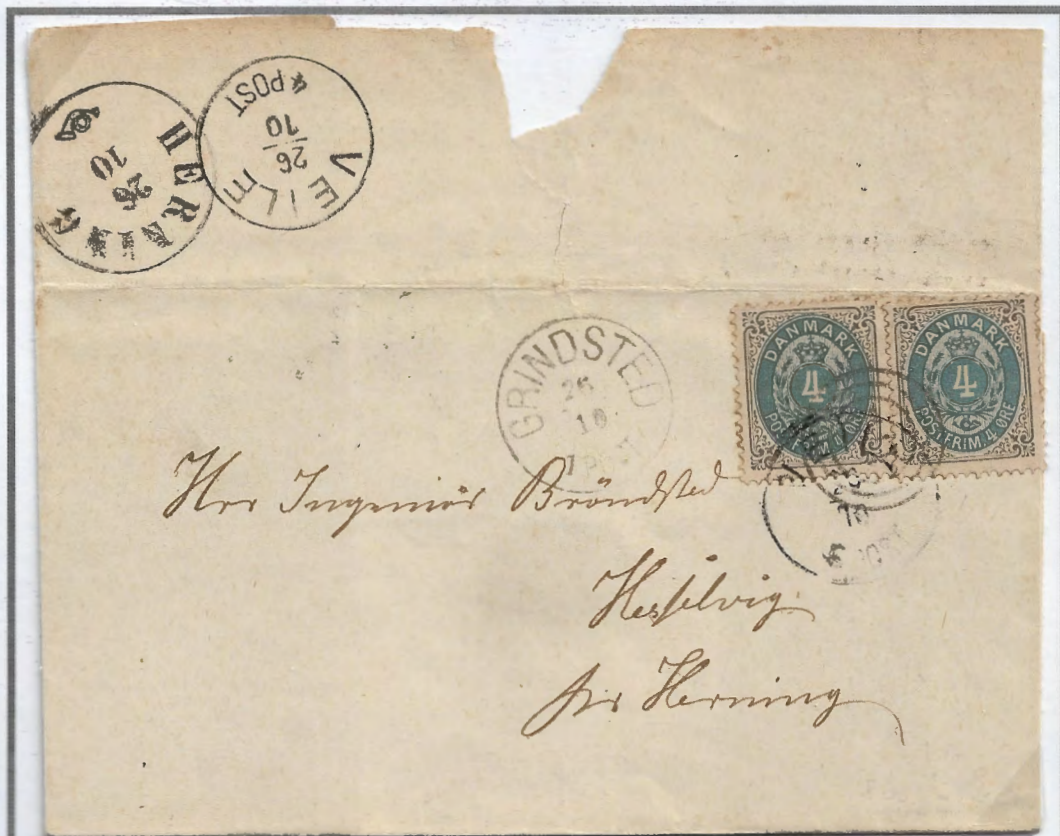 HERNING
26
10
VEILE
26
10
*POST
GRINDSTED
26
10
POST
DANMARK
4
POSTFRIM. 4 ØRE
DANMARK
4
POSTFRIM. 4 ØRE
10
POST
Herr Ingeniör Bröndsted
Hesselvig
pr Herning